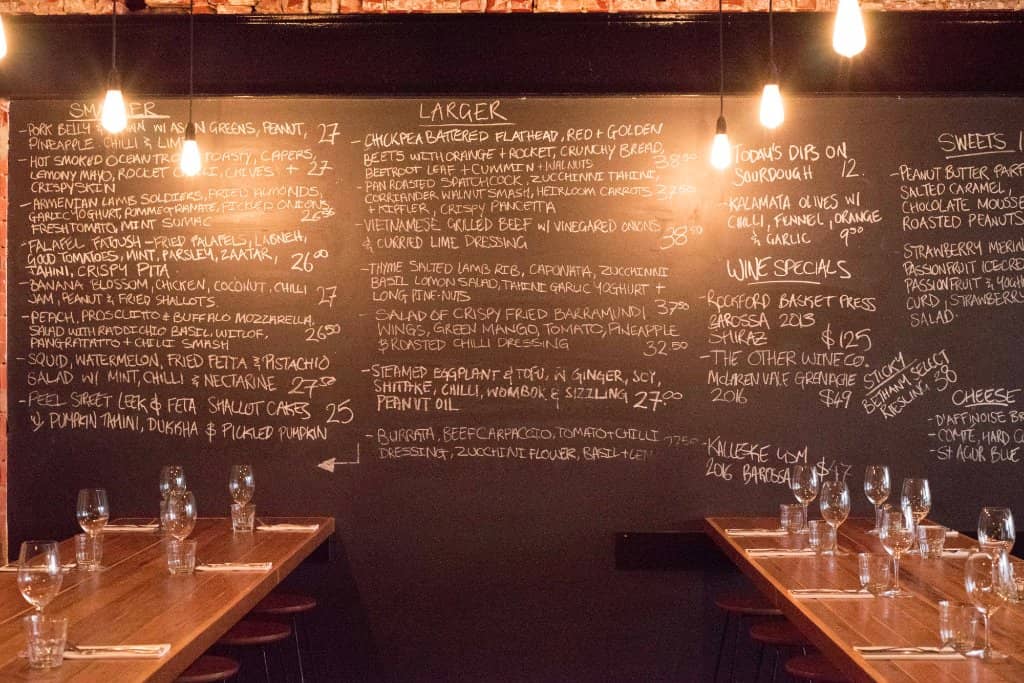 SMALLER
- PORK BELLY & W/ ASIAN GREENS, PEANUT,
PINEAPPLE CHILLI & LIME 27
- HOT SMOKED OCEAN TROUT TOASTY, CAPERS,
LEMONY MAYO, ROCKET CHIVES + 27
CRISPY SKIN
- ARMENIAN LAMB SOLDIERS, FRIED ALMONDS,
GARLIC YOGHURT, POMMEGRANATE, PICKED ONIONS,
FRESH TOMATO, MINT SUMAC 26.50
- FALAFEL FATOUSH - FRIED FALAFELS, LABNEH,
GOOD TOMATOES, MINT, PARSLEY, ZAATAR,
TAHINI, CRISPY PITA. 26.00
- BANANA BLOSSOM, CHICKEN, COCONUT, CHILLI
JAM, PEANUT & FRIED SHALLOTS. 27
- PEACH, PROSCIUTTO & BUFFALO MOZZARELLA,
SALAD WITH RADDICHIO BASIL, WITLOF,
PANGRATTATO + CHILLI SMASH 26.50
- SQUID, WATERMELON, FRIED FETTA & PISTACHIO
SALAD W/ MINT, CHILLI & NECTARINE 27.50
- PEEL STREET LEEK & FETA SHALLOT CAKES
W/ PUMPKIN TAHINI, DUKKHA & PICKLED PUMPKIN 25
LARGER
- CHICKPEA BATTERED FLATHEAD, RED + GOLDEN
BEETS WITH ORANGE + ROCKET, CRUNCHY BREAD,
BEETROOT LEAF + CUMMIN + WALNUTS 38.50
- PAN ROASTED SPATCHCOCK, ZUCCHINNI TAHINI,
CORRIANDER WALNUT SMASH, HEIRLOOM CARROTS
+ KIPFLER, CRISPY PANCETTA
- VIETNAMESE GRILLED BEEF W/ VINEGARED ONIONS
& CURRIED LIME DRESSING 38.50
- THYME SALTED LAMB RIB, CAPONATA, ZUCCHINNI
BASIL LEMON SALAD, TAHINI GARLIC YOGHURT +
LONG PINE-NUTS
- SALAD OF CRISPY FRIED BARRAMUNDI
WINGS, GREEN MANGO, TOMATO, PINEAPPLE
& ROASTED CHILLI DRESSING 32.50
- STEAMED EGGPLANT & TOFU, W GINGER, SOY,
SHITAKE, CHILLI, WOMBOK & SIZZLING
PEANUT OIL 27.00
- BURRATA, BEEF CARPACCIO, TOMATO + CHILLI
DRESSING, ZUCCHINI FLOWER, BASIL +
TODAY'S DIPS ON
SOURDOUGH 12.
- KALAMATA OLIVES W/
CHILLI, FENNEL, ORANGE
& GARLIC 9.50
WINE SPECIALS
- ROCKFORD BASKET PRESS
BAROSSA 2013
SHIRAZ $125
- THE OTHER WINE CO.
MCLAREN VALE GRENACHE
2016 $49
STICKY
BETHANY SELECT
RIESLING 38
- KALLESKE GSM
2016 BAROSSA $47
SWEETS
- PEANUT BUTTER PARF
SALTED CARAMEL,
CHOCOLATE MOUSSE
ROASTED PEANUTS
STRAWBERRY MERIN
PASSIONFRUIT ICECRE
PASSIONFRUIT & YOGH
CURD, STRAWBERRY
SALAD.
CHEESE
- D'AFFINOISE BR
- COMTE, HARD C
- ST AGUR BLUE